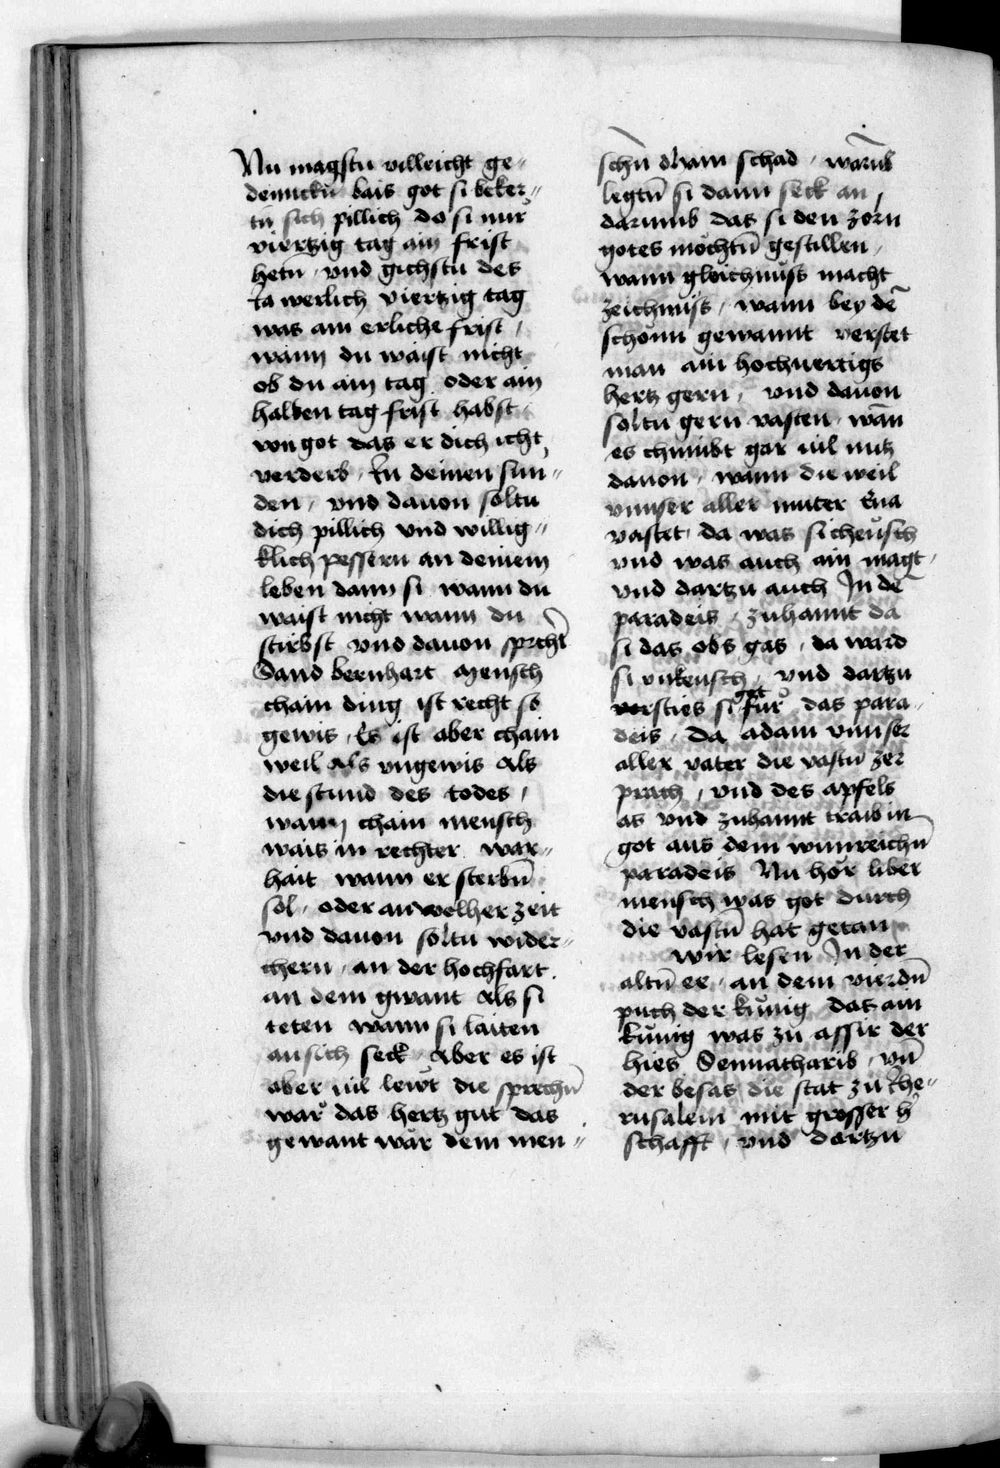 Nu magstu villeicht ge⸗
denncken bais got si beker⸗
tn̄ sich pillich do si nur
viertzig tag ain frist
hetn̄ · vnd gichstu des
ia werlich viertzig tag
was ain erliche frist ,
wann du waist nicht
ob du ain tag oder ain
halben tag frist habst
von got das er dich icht
verderb · In deinen sun⸗
den , vnd dauon soltu
dich pillich vnd willig⸗
klich pessern an deinem
leben dann si wann du
waist nicht wann du
stirbst vnd dauon sprchͭ
Sand bernhart Mensch
chain ding ist recht so
gewis , Es ist aber chain
weil als vngewis als
die stund des todes ,
wann chain mensch
wais in rechter war⸗
hait wann er sterbn̄
sol · oder an welher zeit
vnd dauon soltu wider⸗
chern · an der hochfart .
an dem gwant als si
teten wann si laiten
an sich seck Aber es ist
aber vil lewt die sprechn̄
wär das hertz gut das
gewant wär dem men⸗
schn̄ chain schad , warūb
legtn̄ si dann seck an ,
darumb das si den zorn
gotes möchtn̄ gestillen ,
wann gleichnüss macht
zeichnüss , wann bey dē
schönn gewannt verstet
man ain hochuertigs
hertz gern , vnd dauon
soltu gern vasten , wān
es chumbt gar vil nutz
dauon , wann die weil
vnnser aller muter Eua
vastet da was si cheüsch
vnd was auch ain magt ,
vnd dartzu auch In dē
paradeis , zuhannt da
si das obs gas , da ward
si vnkeusch , vnd dartzu
versties si got für das para⸗
deis , da adam vnnser
aller vater die vastn̄ zer
prach , vnd des apfels
as vnd zuhannt traib in
got aus dem wunreichn̄
paradeis Nu hör liber
mensch was got durch
die vastn̄ hat getan
Wir lesen In der
altn̄ ee , an dem vierdn̄
puch der künig das ain
künig was zu assir der
hies Sennatharib , vn̄
der besas die stat zu Jhe⸗
rusalem mit grosser h̄
schafft , vnd dartzu